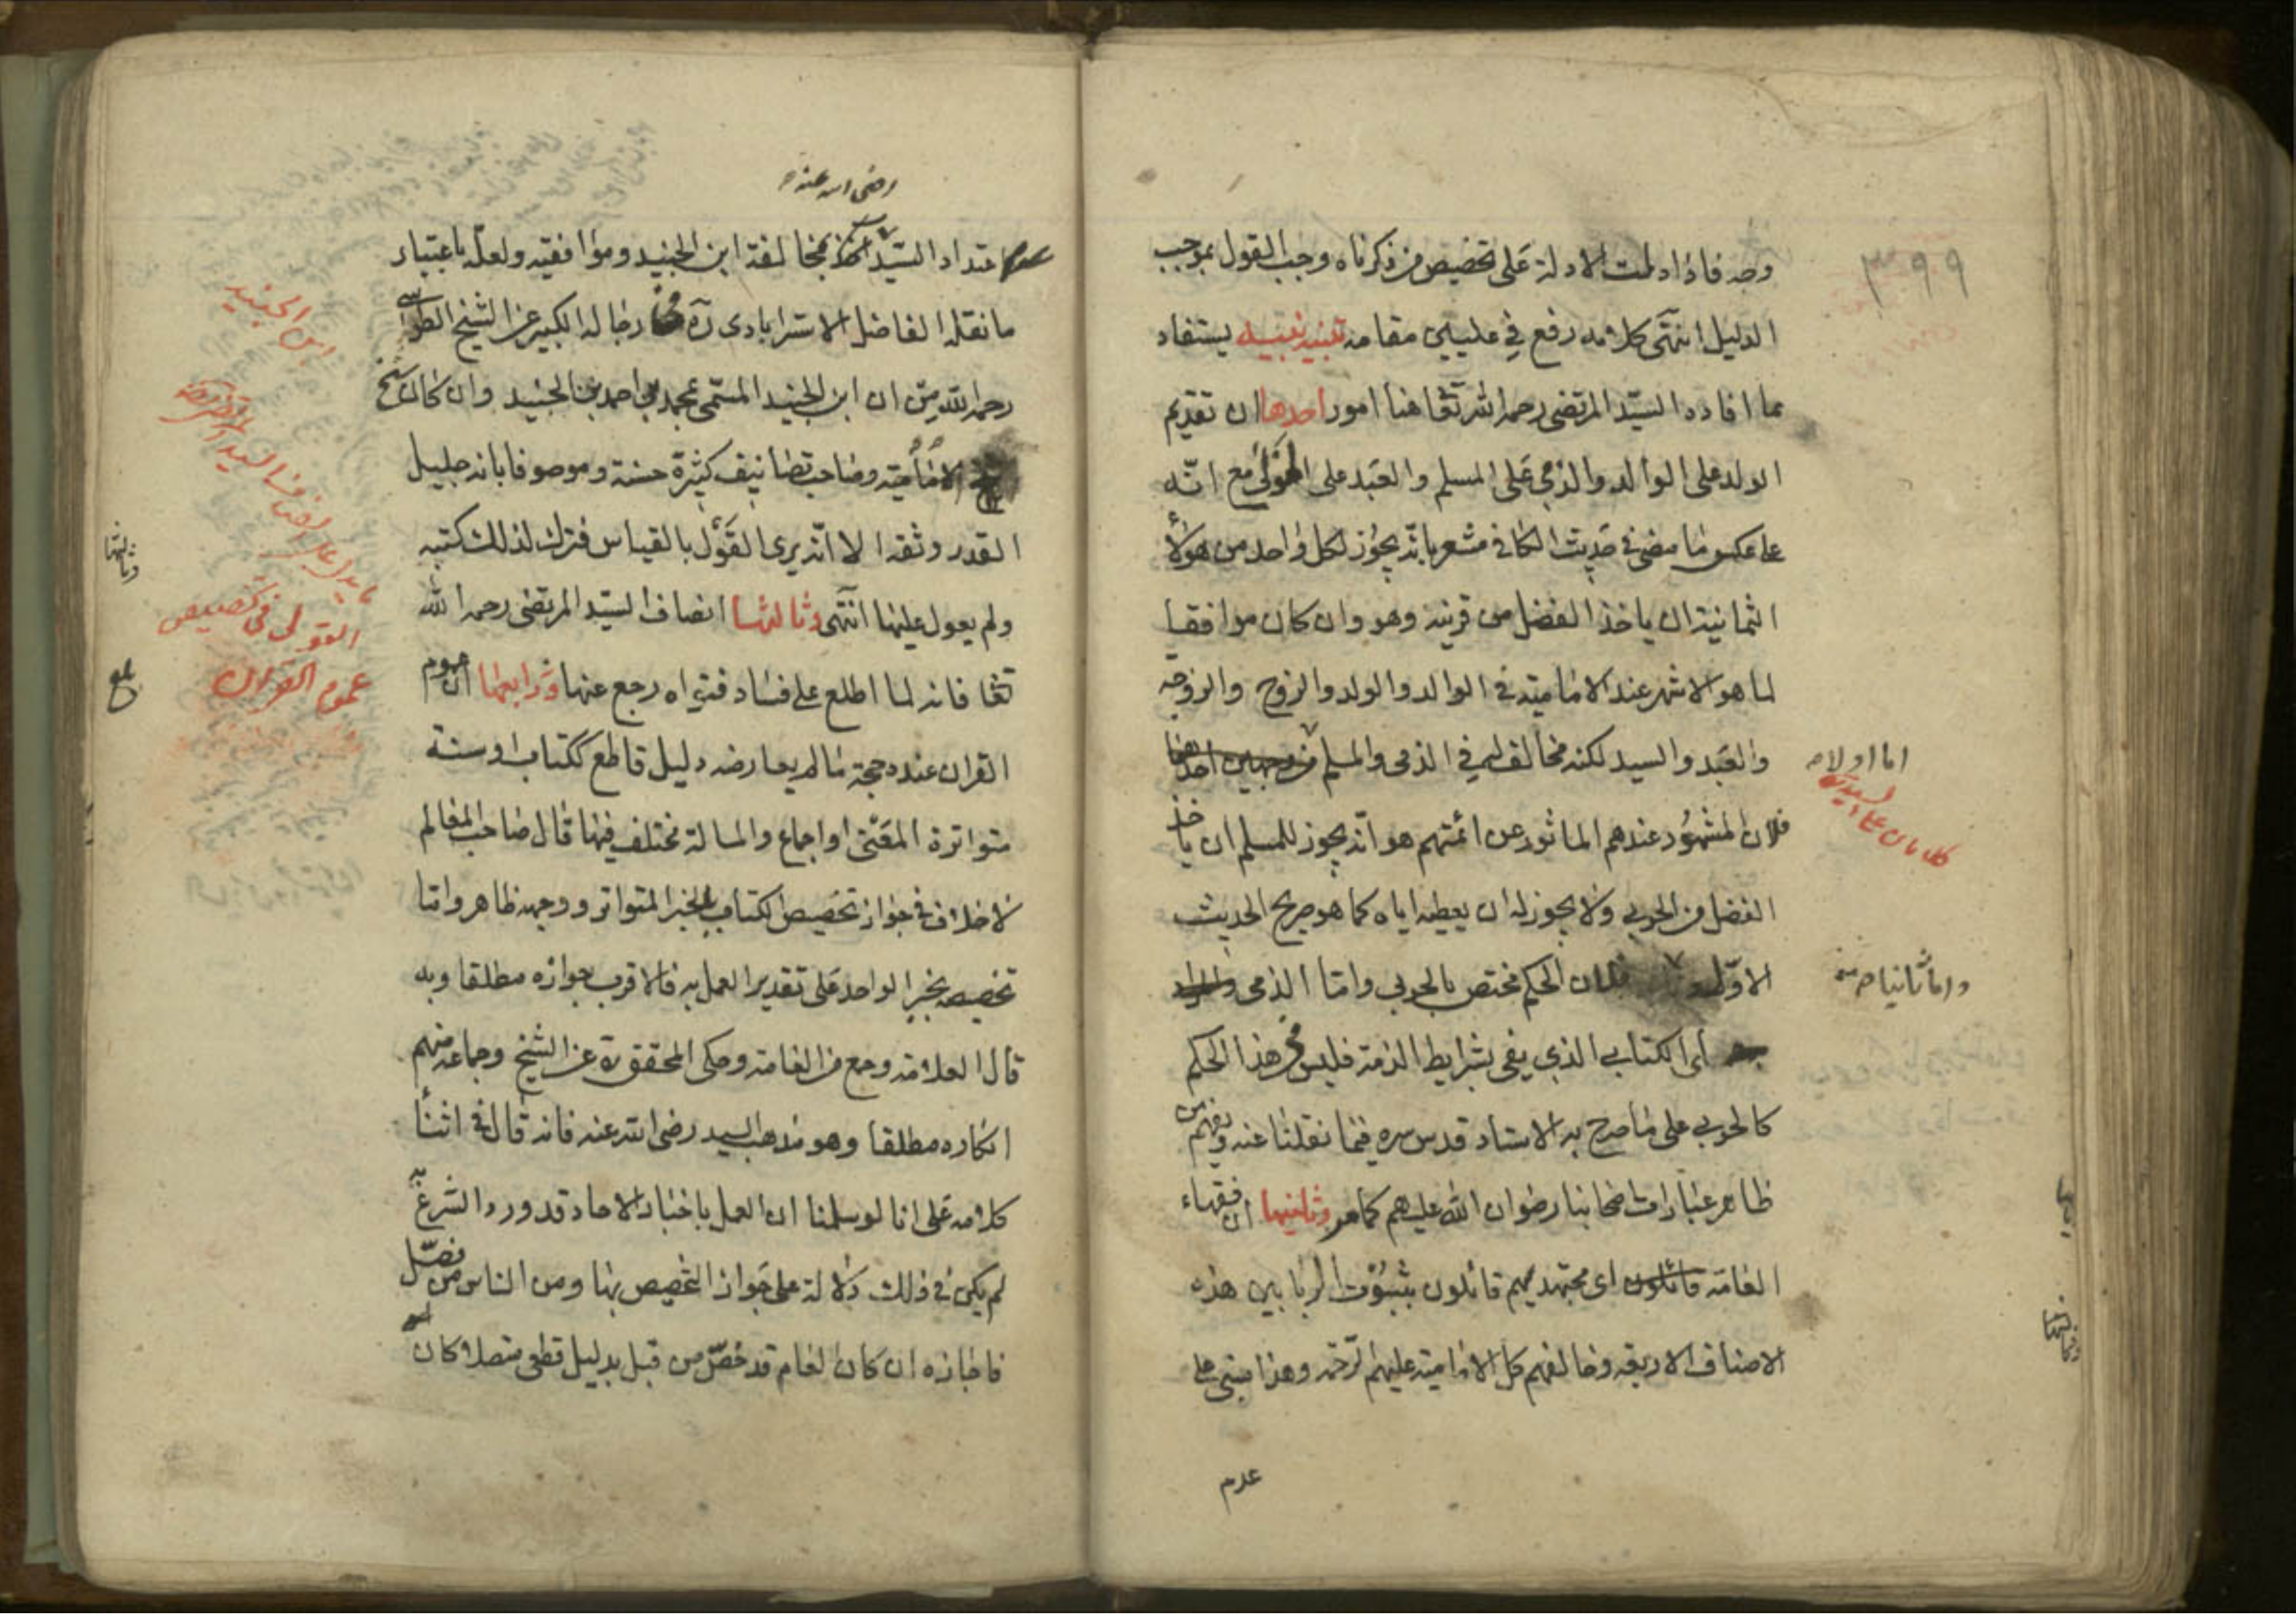 ٣٩٩
وجه فاذا دلت الادلة على تخصيص من ذكرناه وجب القول بموجب
الدليل انتهى كلامه رفع في عليين مقامه تنبيه نبيه يستفاد
مما افاده السيّد المرتضى رحمه الله تعا هنا امور احدها ان تقديم
الولد على الوالد والذمي على المسلم والعبد على المولى مع انّه
على عكس ما مضى في حديث الكافي مشعر بانّه يجوز لكل واحد من هؤلاء
الثمانية ان ياخذ الفضل من قرينه وهو وان كان موافقا
لما هو الاشهر عند الامامية في الوالد والولد والزوج والزوجه
والعبد والسيد لكنه مخالف لهم في الذمى والمسلم من وجهين احدهما
اما اولا صح
كلام على السيد
فلان المشهور عندهم الماثور عن ائمتهم هو انّه يجوز للمسلم ان ياخذ
الفضل من الحربي ولا يجوز له ان يعطيه اياه كما هو صريح الحديث
الاوّل فلان الحكم مختص بالحربي وامّا الذمى
واما ثانيا صح
اى الكتابي الذي يفى بشرايط الذمة فليس هذا الحكم
كالحربي على ما صرح به الاستاد قدس سره فيما نقلنا عنه ويفهم من
ظاهر عبارات اصحابنا رضوان الله عليهم كما مر وثانيها ان فقهاء
العامة قائلون اى مجتهديهم قائلون بثبوت الربا بين هذه
الاصناف الاربعه وخالفهم كل الامامية عليهم الرحمه وهذا مبنى على
عدم
رضى الله عنه صح
عدم اعتداد السيّد بمخالفة ابن الجنيد وموافقيه ولعلّه باعتبار
ما نقله الفاضل الاسترابادى ره في رجاله الكبير عن الشيخ الطوسي
رحمه الله من ان ابن الجنيد المسمّى بمحمد بن احمد بن الجنيد وان كان شيخ
الامامية وصاحب تصانيف كثيرة حسنة وموصوفا بانه جليل
القدر وثقه الا انّه يرى القول بالقياس فترك لذلك كتبه
ولم يعول عليها انتهى وثالثها انصاف السيّد المرتضى رحمه الله
تعا فانه لما اطلع على فساد فتواه رجع عنها ورابعها ان عموم
القران عنده حجة ما لم يعارضه دليل قاطع ككتاب او سنة
متواترة المعنى او اجماع والمسالة مختلف فيها قال صاحب المعالم
لا خلاف في جواز تخصيص الكتاب بالخبر المتواتر ووجهه ظاهر وامّا
تخصيصه بخبر الواحد على تقدير العمل به فالاقرب جوازه مطلقا وبه
قال العلامة وجمع من العامة وحكى المحقق ره عن الشيخ وجماعة منهم
انكاره مطلقا وهو مذهب السيد رضى الله عنه فانه قال في اثناء
كلامه على انا لو سلمنا ان العمل باخبار الاحاد قد ورد الشرع به
لم يكن في ذلك دلالة على جواز التخصيص بها ومن الناس من فصّل
فاجازه ان كان العام قد خصّ من قبل بدليل قطعى متصلا كان
ابن الجنيد
ما يدل على انصاف السيد المرتضى
القول في تخصيص
عموم القران
بلغ